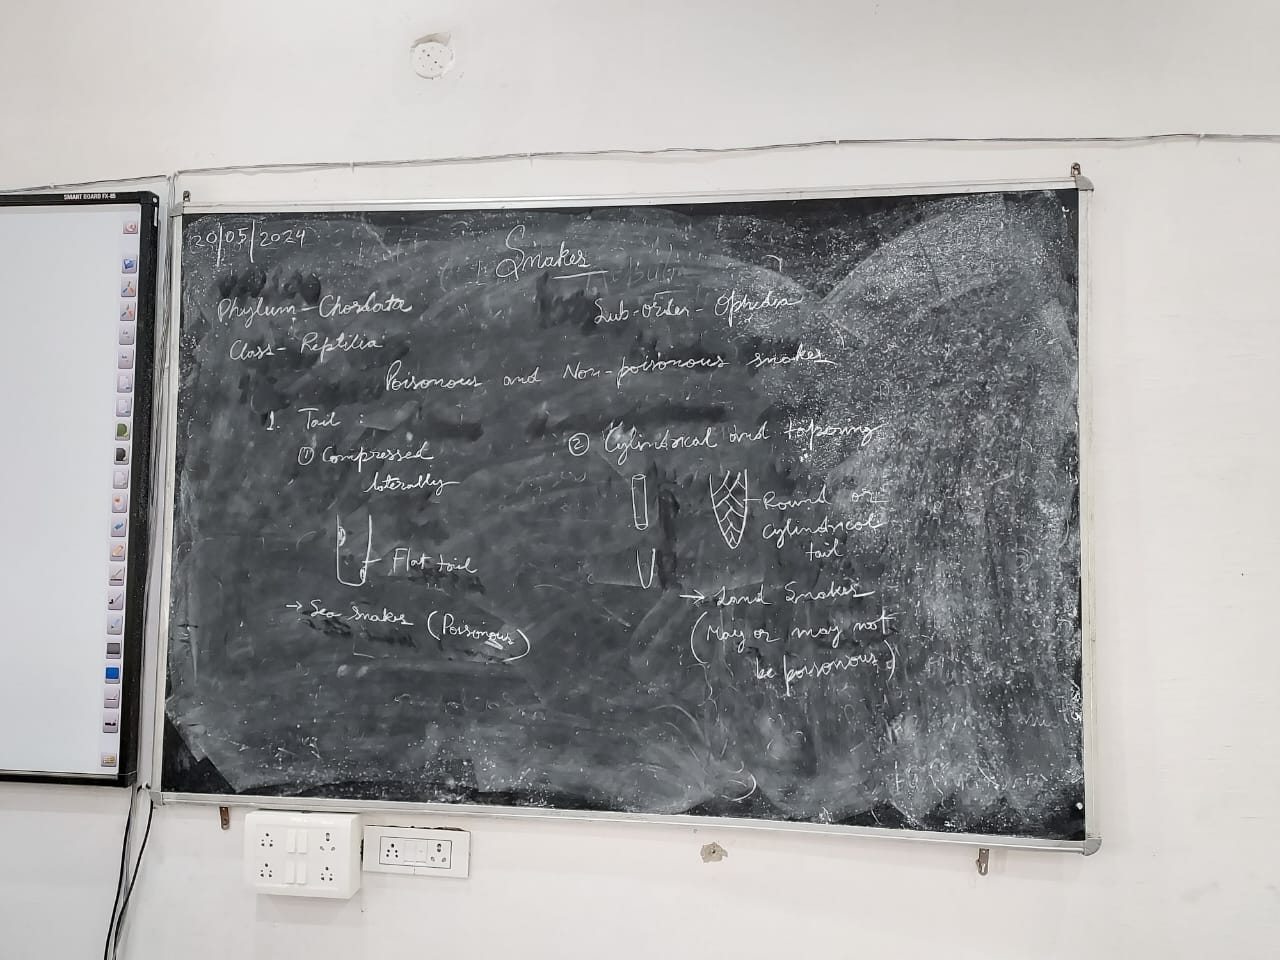 SMART BOARD FX-85
20/05/2024
Snakes
Phylum - Chordata
Sub-order - Ophedia
Class - Reptilia
Poisonous and Non-poisonous snakes
1. Tail :
① Compressed
laterally
② Cylindrical and tapering
Round or
cylindrical
tail
Flat tail
→ Sea snakes (Poisonous)
→ Land Snakes
(May or may not
be poisonous)